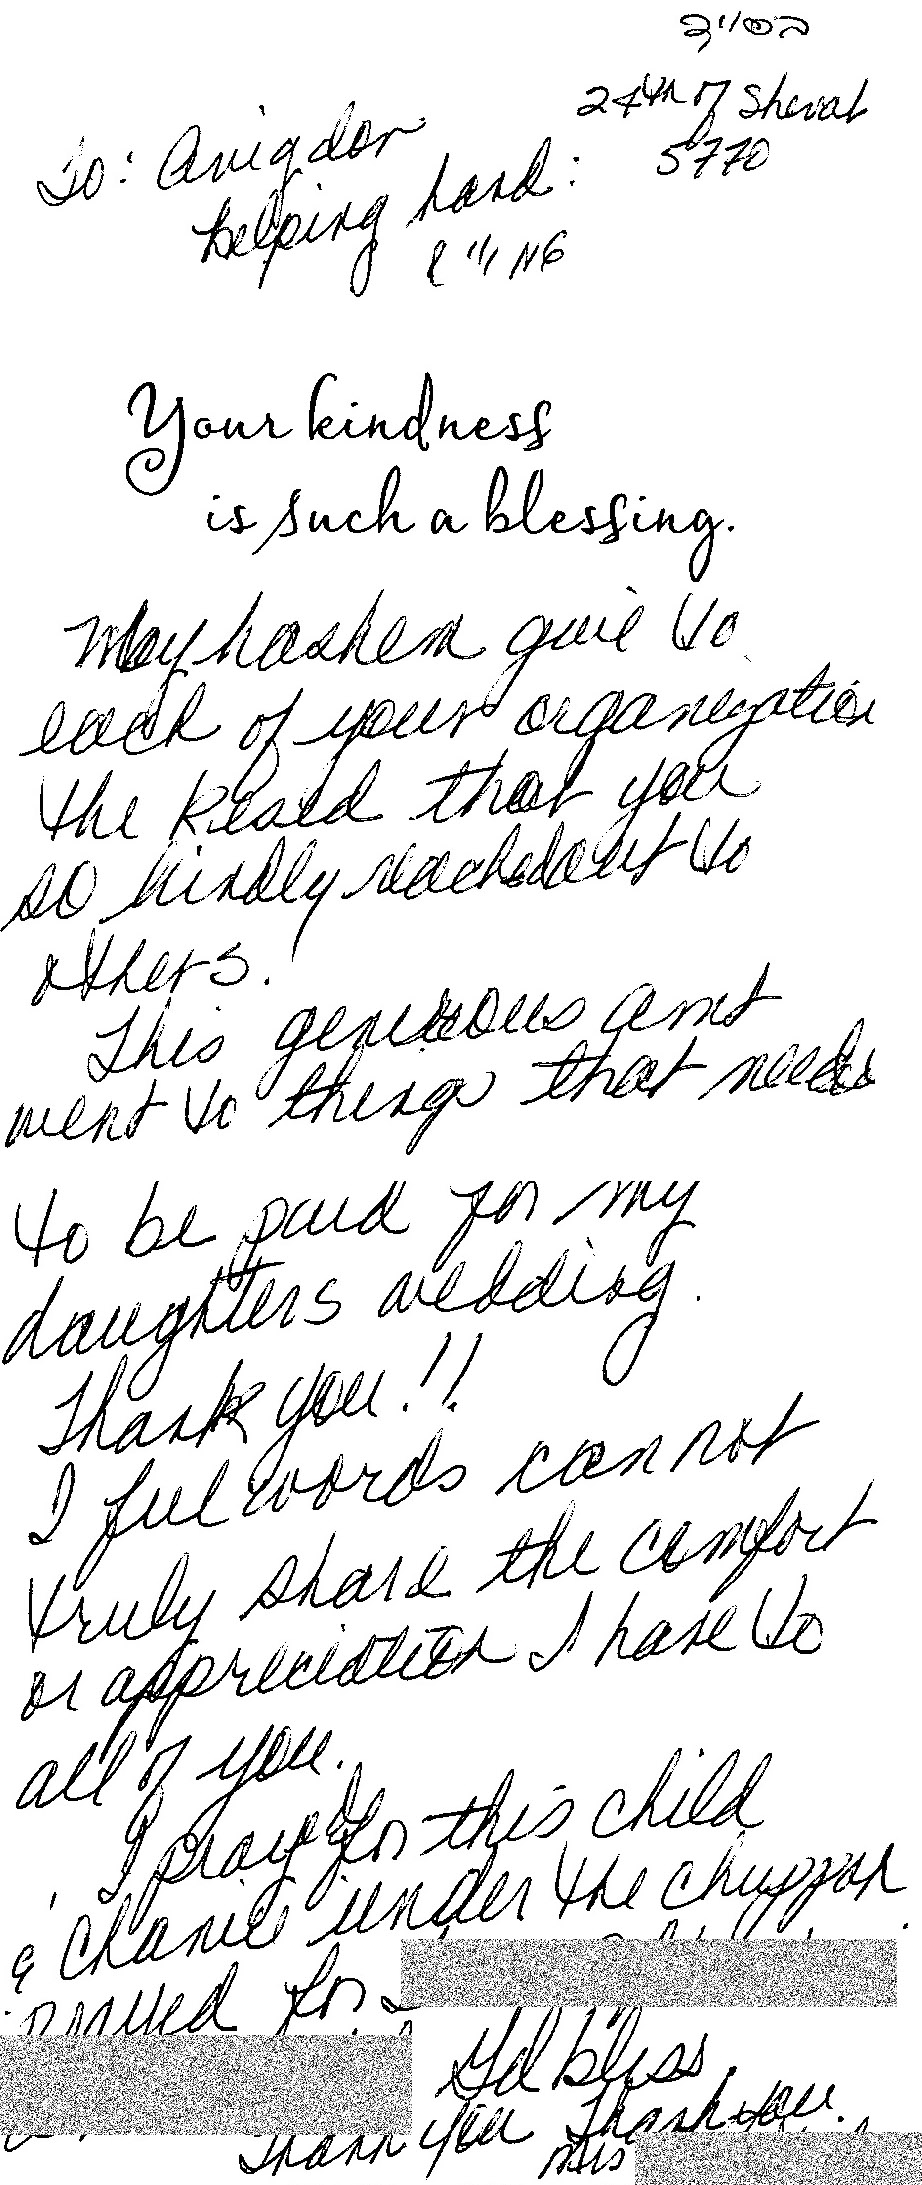 בס״ד
24th of Shevat
5770
To: Avigdor
helping hand:
Your kindness
is such a blessing.
May hashem give to
each of your organization
the kesed that you
so kindly reached out to
others.
This generous amt
went to things that needs
to be paid for my
daughters wedding.
Thank you!!
I feel words cannot
truly share the comfort
or appreciation I have to
all of you.
I prayed for this child
& Chanie under the chuppah
prayed for
Gd bless
Thank you Thank you.
Mrs